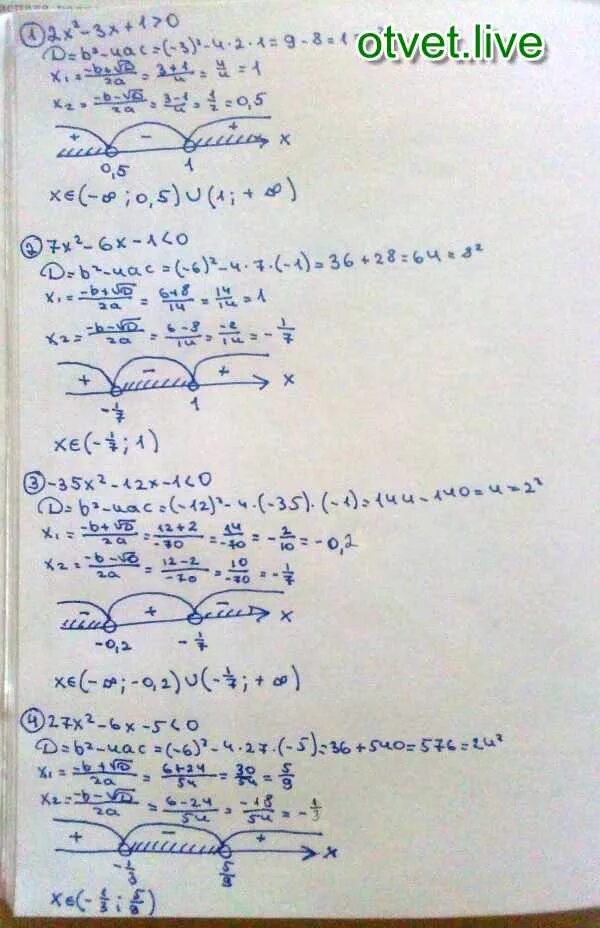 ① 2x²-3x+1>0
D=b²-4ac=(-3)²-4·2·1=9-8=1
otvet.live
x₁=(-b+√D)/2a=(3+1)/4=4/4=1
x₂=(-b-√D)/2a=(3-1)/4=1/2=0,5
+ - + x
0,5 1
x∈(-∞;0,5)∪(1;+∞)
② 7x²-6x-1<0
D=b²-4ac=(-6)²-4·7·(-1)=36+28=64=8²
x₁=(-b+√D)/2a=(6+8)/14=14/14=1
x₂=(-b-√D)/2a=(6-8)/14=-2/14=-1/7
+ - + x
-1/7 1
x∈(-1/7;1)
③ -35x²-12x-1<0
D=b²-4ac=(-12)²-4·(-35)·(-1)=144-140=4=2²
x₁=(-b+√D)/2a=(12+2)/-70=14/-70=-2/10=-0,2
x₂=(-b-√D)/2a=(12-2)/-70=10/-70=-1/7
- + - x
-0,2 -1/7
x∈(-∞;-0,2)∪(-1/7;+∞)
④ 27x²-6x-5<0
D=b²-4ac=(-6)²-4·27·(-5)=36+540=576=24²
x₁=(-b+√D)/2a=(6+24)/54=30/54=5/9
x₂=(-b-√D)/2a=(6-24)/54=-18/54=-1/3
+ - + x
-1/3 5/9
x∈(-1/3;5/9)